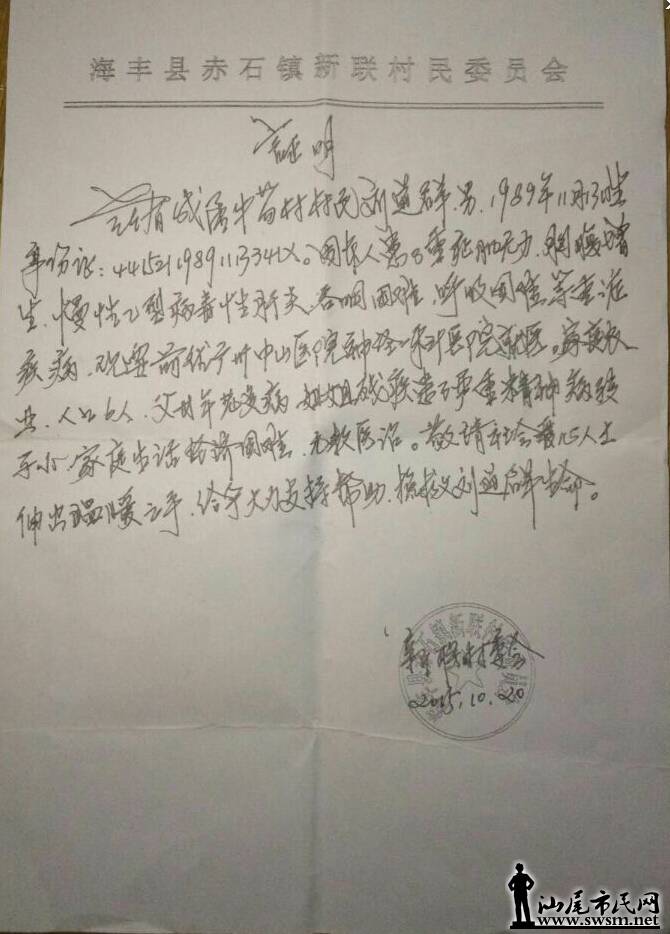 海丰县赤石镇新联村民委员会
证明
兹有我居中苗村村民刘道群,男,1989年11月13日生
身份证:44152119891113341X。因本人患了重症肌无力、胸腺增
生、慢性乙型病毒性肝炎、吞咽困难、呼吸困难等重症
疾病,现需前往广州中山医院就医。家庭农
业,人口6人,父母年老多病,姐姐残疾患严重精神病,
子小,家庭生活经济困难,无款医治。敬请社会热心人士
伸出温暖之手,给予大力支持帮助,拯救刘道群生命。
新联村委会
2015.10.20
汕尾市民网
www.swsm.net